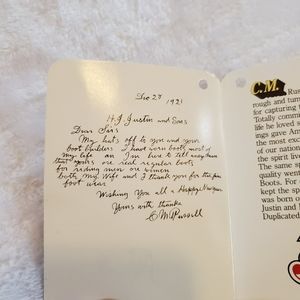 Dec 27
1921
H.J Justin and Sons
Dear Sirs
My hats off to you and your
boot builders I have worn boots most of
my life an Im here to tell everybody
that yours are real regular boots
for riding men or women
both my Wife and I thank you for the fine
foot wear
Wishing You all a Happy New year
Yours with thanks
C M Russell
C.M. Rus
rough and tum
for capturing t
Totally comm
life he loved s
ings gave Am
the most exc
of our nation
the spirit live
The same sp
quality even
Boots. For
kept the spi
was born o
Justin and
Duplicated